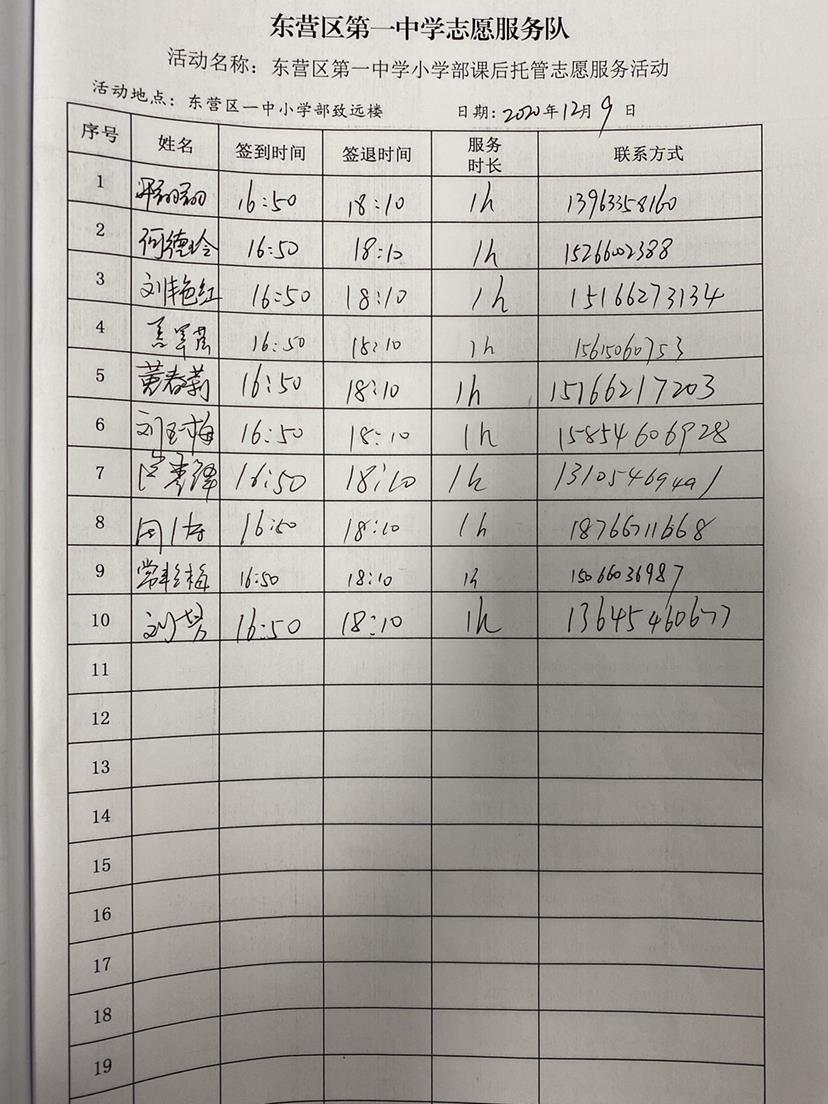 东营区第一中学志愿服务队
活动名称：东营区第一中学小学部课后托管志愿服务活动
活动地点：东营区一中小学部致远楼 日期：2020年12月9日
序号 姓名 签到时间 签退时间 服务时长 联系方式
1 16:50 18:10 1h 13963358160
2 何德玲 16:50 18:10 1h 15266002388
3 刘艳红 16:50 18:10 1h 15166273134
4 16:50 18:10 1h 15615060753
5 黄春莉 16:50 18:10 1h 15766217203
6 刘玉梅 16:50 18:10 1h 15854606928
7 16:50 18:10 1h 13105469491
8 16:50 18:10 1h 18766711668
9 16:50 18:10 1h 15066036987
10 16:50 18:10 1h 13645460677
11
12
13
14
15
16
17
18
19